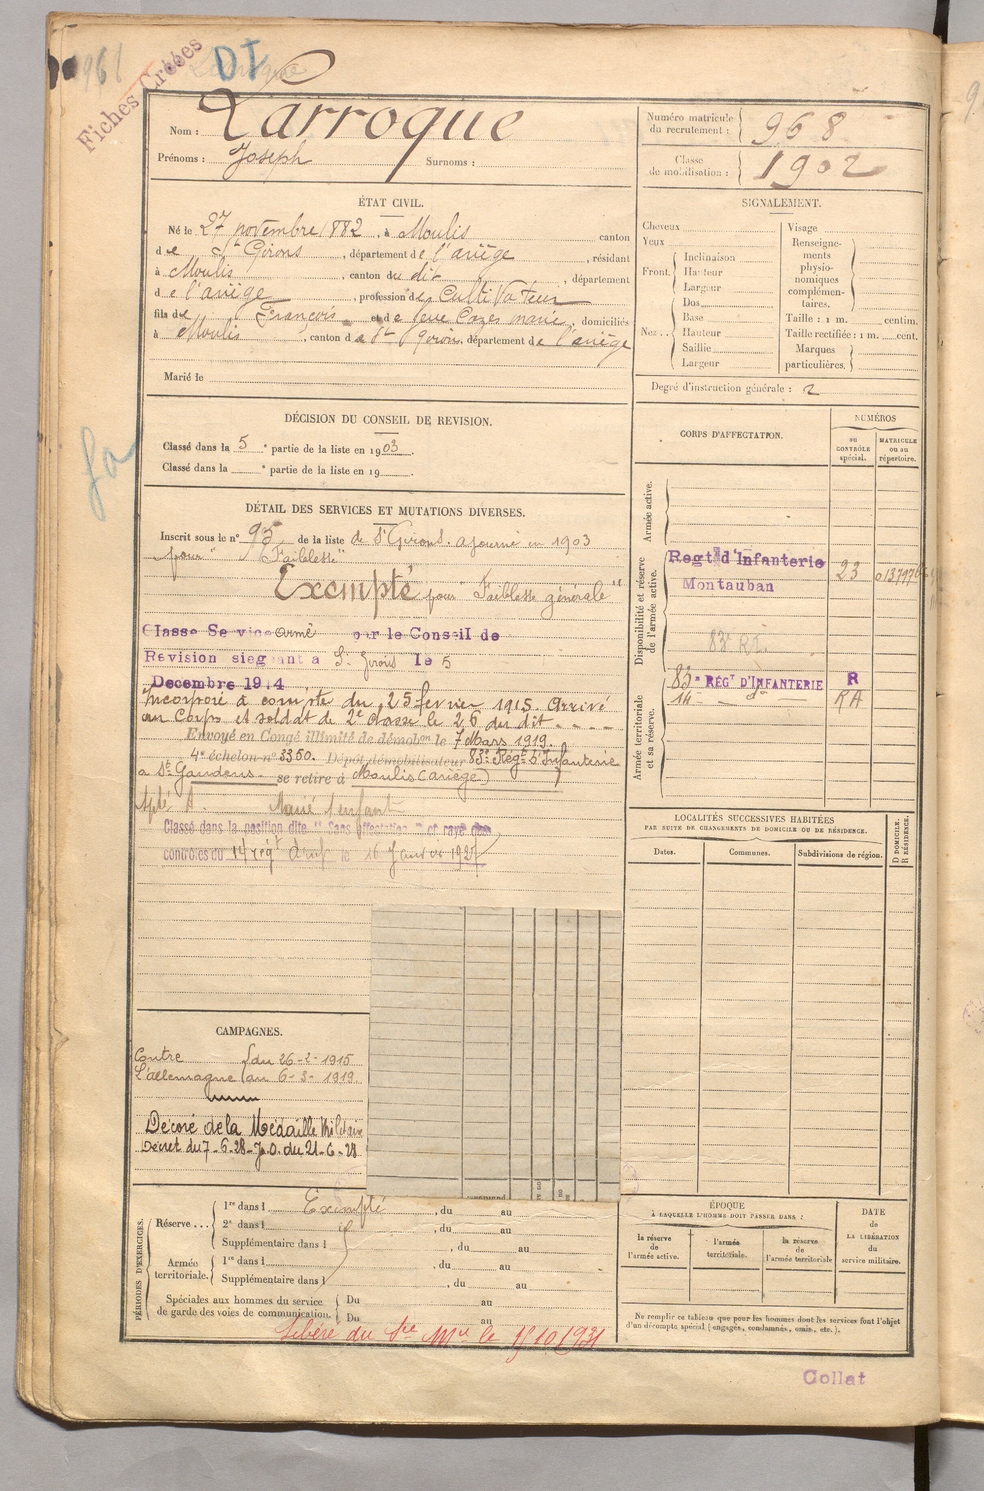 1961
Fiches Créées
DI
Nom : Larroque
Prénoms : Joseph Surnoms :
Numéro matricule du recrutement : 968
Classe de mobilisation : 1902
ÉTAT CIVIL.
Né le 27 novembre 1882, à Moulis canton
de St Girons, département de l'ariège, résidant
à Moulis, canton du dit, département
de l'ariège, profession de Cultivateur
fils de François et de feue Cazes marie, domiciliés
à Moulis, canton de St Girons, département de l'ariège
Marié le
SIGNALEMENT.
Cheveux
Yeux
Front. Inclinaison
Hauteur
Largeur
Nez .. Dos
Base
Hauteur
Saillie
Largeur
Visage
Renseignements physionomiques complémentaires.
Taille : 1 m. centim.
Taille rectifiée : 1 m. cent.
Marques particulières.
Degré d'instruction générale : 2
DÉCISION DU CONSEIL DE REVISION.
Classé dans la 5e partie de la liste en 1903.
Classé dans la e partie de la liste en 19 .
DÉTAIL DES SERVICES ET MUTATIONS DIVERSES.
Inscrit sous le n° 95 de la liste de St Girons. ajourné en 1903
pour "Faiblesse"
Exempté pour "Faiblesse générale"
Classe Service armé par le Conseil de
Révision siegeant a St Girons le 5
Decembre 1914
Incorporé à compter du 25 fevrier 1915. Arrivé
au Corps et soldat de 2e classe le 26 du dit
Envoyé en Congé illimité de démobon le 7 Mars 1919.
4e échelon no 3350. Dépôt démobilisateur 83e Régt d'Infanterie
a St Gaudens se retire à Moulis (ariège)
Marié 1 enfant
Classé dans la position dite "Sans affectation" et rayé des
contrôles du 14e régt le 16 Janvier 1927
CORPS D'AFFECTATION.
NUMÉROS
au CONTRÔLE spécial.
MATRICULE ou au répertoire.
Armée active.
Disponibilité et réserve de l'armée active.
Regt d'Infanterie 23
Montauban
83e R.I.
Armée territoriale et sa réserve.
83e RÉGT D'INFANTERIE R
14 - do RA
LOCALITÉS SUCCESSIVES HABITÉES
PAR SUITE DE CHANGEMENTS DE DOMICILE OU DE RÉSIDENCE.
Dates.
Communes.
Subdivisions de région.
D DOMICILE.
R RÉSIDENCE.
CAMPAGNES.
Contre du 26-2-1915
L'allemagne au 6-3-1919.
Décoré de la Médaille Militaire
Décret du 7-6-28 J.O. du 21-6-28
PÉRIODES D'EXERCICES.
Réserve ... 1re dans l Exempté, du au
2e dans l, du au
Supplémentaire dans l, du au
Armée territoriale. 1re dans l, du au
Supplémentaire dans l, du au
Spéciales aux hommes du service de garde des voies de communication. Du au
Du au
Libéré du Sce Mre le 15 10 1931
ÉPOQUE
À LAQUELLE L'HOMME DOIT PASSER DANS :
la réserve de l'armée active.
l'armée territoriale.
la réserve de l'armée territoriale
DATE de LA LIBÉRATION du service militaire.
Ne remplir ce tableau que pour les hommes dont les services font l'objet
d'un décompte spécial (engagés, condamnés, omis, etc.).
Collat